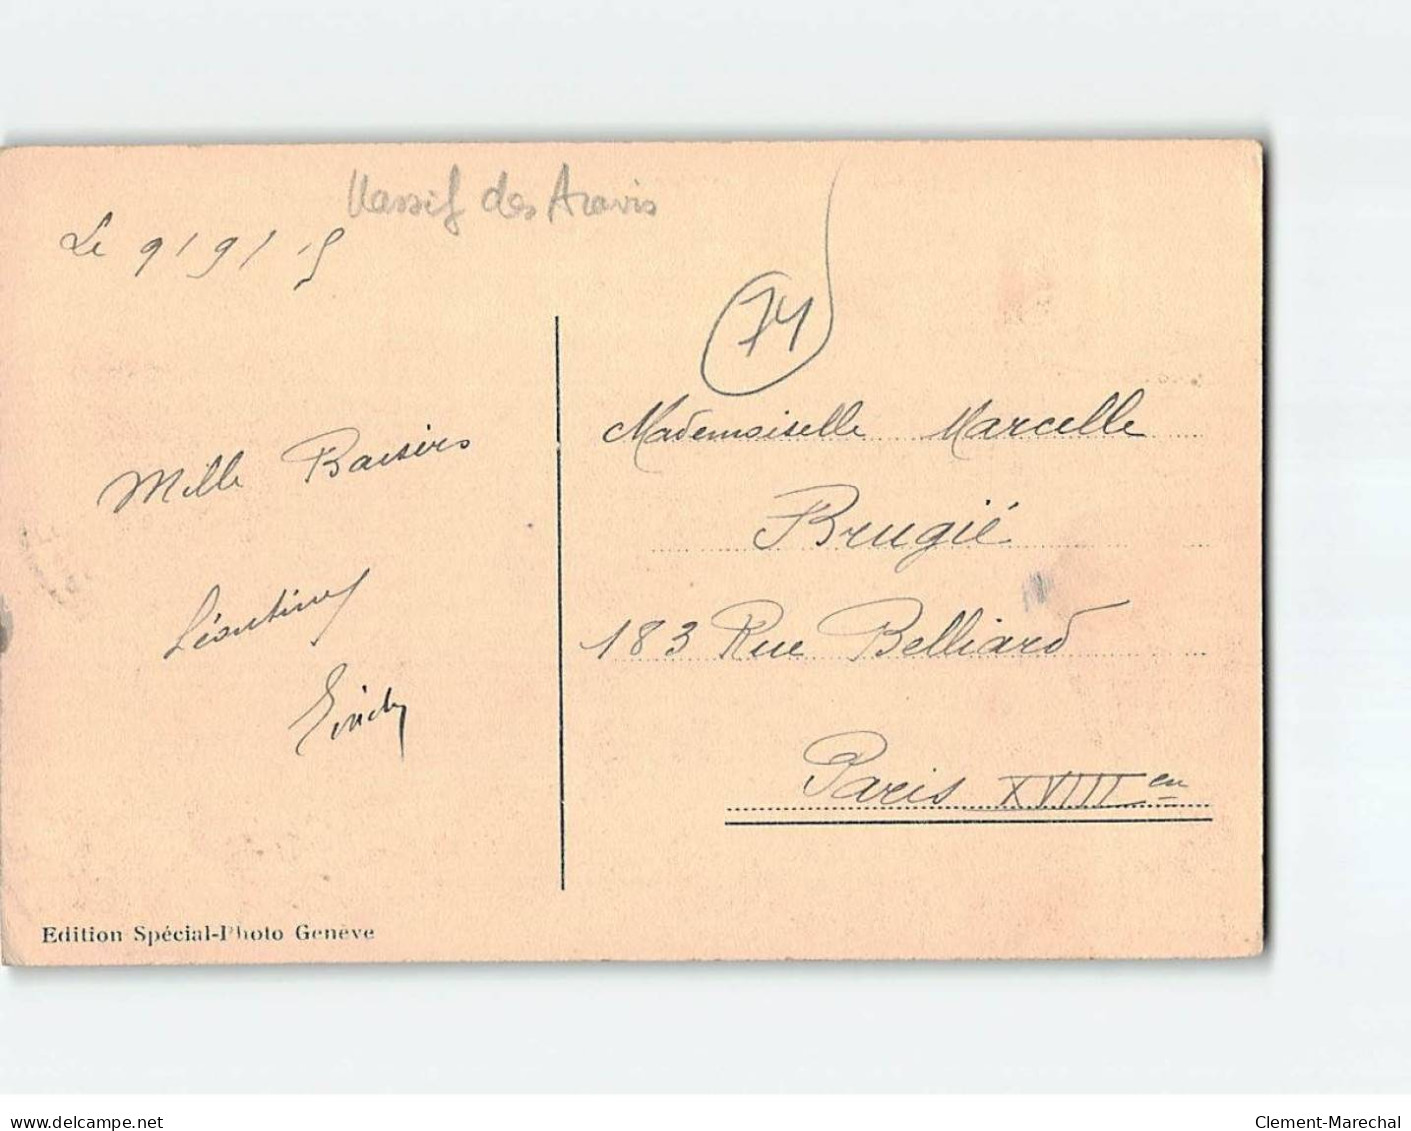 Massif des Aravis
Le 9/9/15
74
Mille Baisers
Léontine
Mademoiselle Marcelle
Brugié
183 Rue Belliard
Paris XVIII en
Edition Spécial-Photo Genève
www.delcampe.net
Clement-Marechal